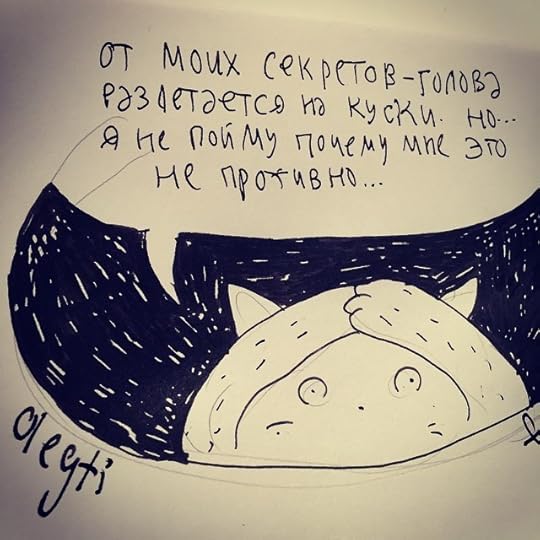 ОТ МОИХ СЕКРЕТОВ-ГОЛОВА
РАЗЛЕТАЕТСЯ НА КУСКИ. НО...
Я НЕ ПОЙМУ ПОЧЕМУ МНЕ ЭТО
НЕ ПРОТИВНО...
olegti